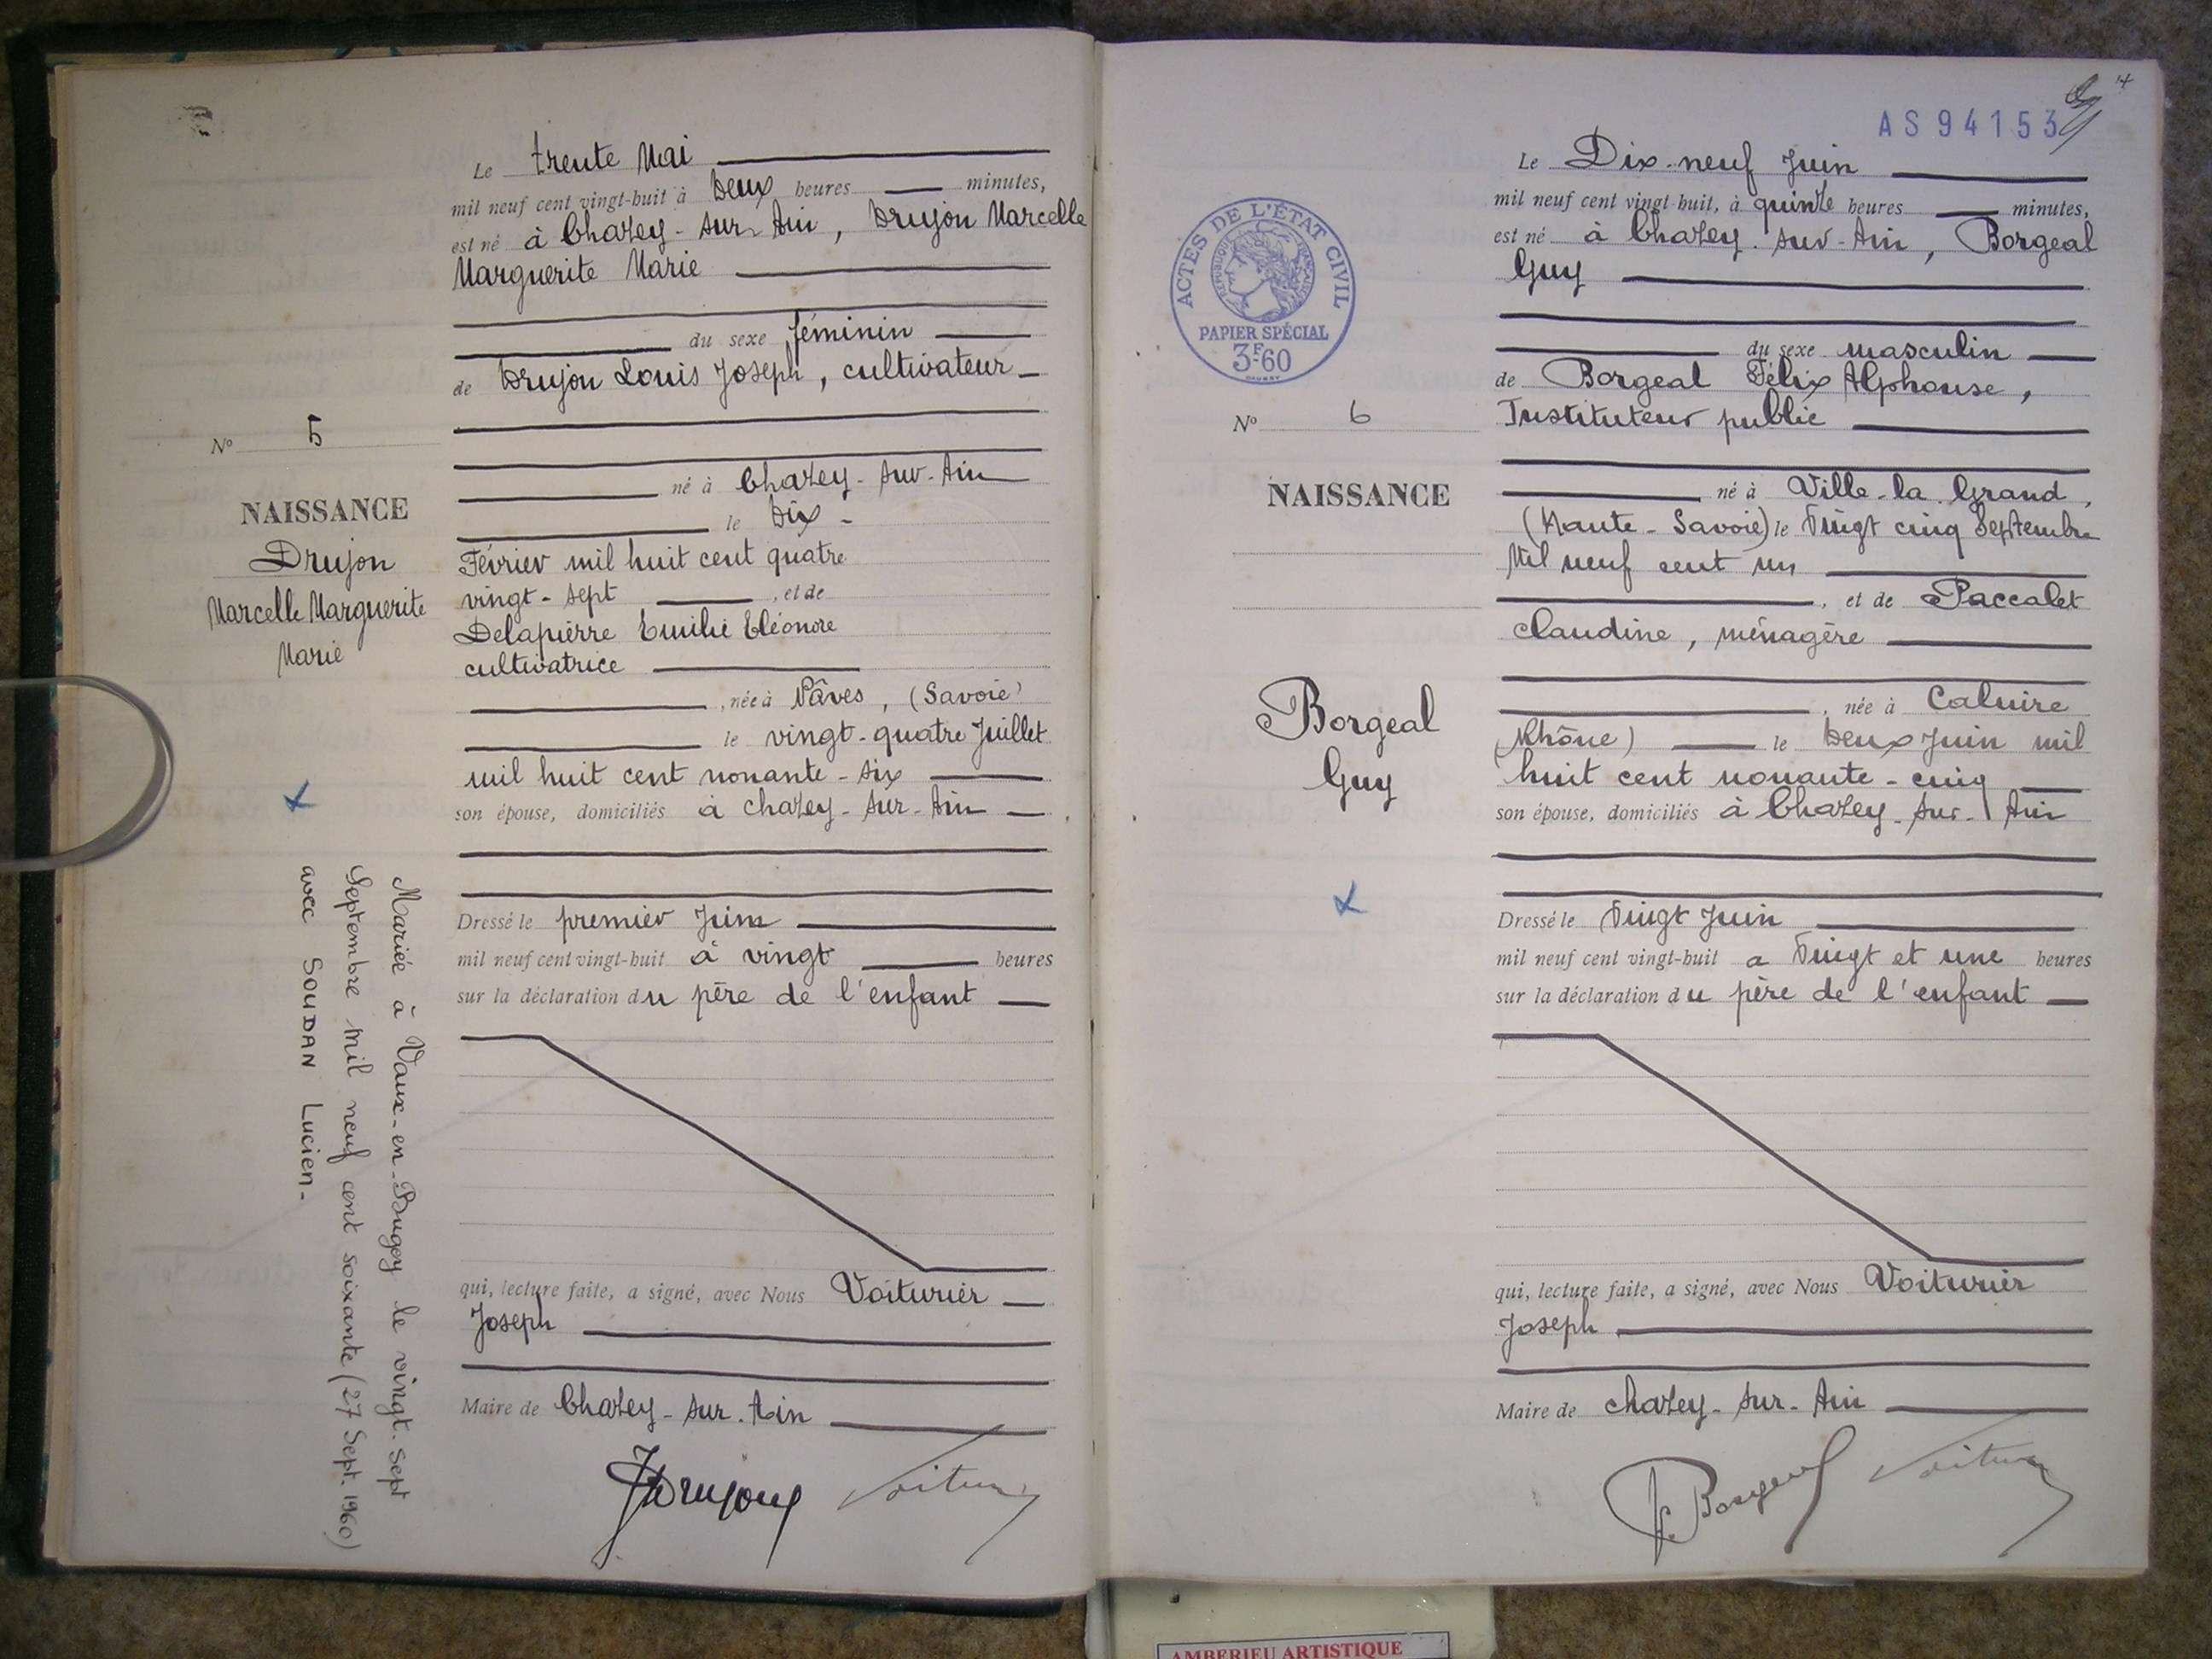 Le trente Mai
mil neuf cent vingt-huit à Deux heures minutes,
est né à Chazey-sur-Ain, Drujon Marcelle
Marguerite Marie
du sexe féminin
de Drujon Louis Joseph, cultivateur
No 5
né à Chazey-sur-Ain
NAISSANCE
le Dix
Drujon
Février mil huit cent quatre
Marcelle Marguerite
vingt-sept , et de
Marie
Delapierre Emilie Eléonore
cultivatrice
, née à (Savoie)
le vingt-quatre Juillet
mil huit cent nonante-six
son épouse, domiciliés à chazey-sur-Ain
Dressé le premier Juin
mil neuf cent vingt-huit à vingt heures
sur la déclaration du père de l'enfant
Mariée à Vaux-en-Bugey le vingt-sept
Septembre mil neuf cent soixante (27 Sept. 1960)
avec SOUDAN Lucien-
qui, lecture faite, a signé, avec Nous Voiturier
Joseph
Maire de Chazey-sur-Ain
JDrujon Voiturier
4
AS94153
Le Dix-neuf Juin
mil neuf cent vingt-huit, à quinze heures minutes,
est né à Chazey-sur-Ain, Borgeal
Guy
ACTES DE L'ÉTAT CIVIL
RÉPUBLIQUE FRANÇAISE
PAPIER SPÉCIAL
3F60
du sexe masculin
de Borgeal Félix Alphonse,
No 6
Instituteur public
NAISSANCE
né à Ville-la-Grand,
(Haute-Savoie) le Vingt cinq Septembre
Mil neuf cent un
, et de Paccalet
Claudine, ménagère
Borgeal
Guy
, née à Caluire
(Rhône) le Deux Juin mil
huit cent nonante-cinq
son épouse, domiciliés à Chazey-sur-Ain
Dressé le Vingt Juin
mil neuf cent vingt-huit a Vingt et une heures
sur la déclaration du père de l'enfant
qui, lecture faite, a signé, avec Nous Voiturier
Joseph
Maire de chazey-sur-Ain
F. Borgeal Voiturier
AMBERIEU ARTISTIQUE